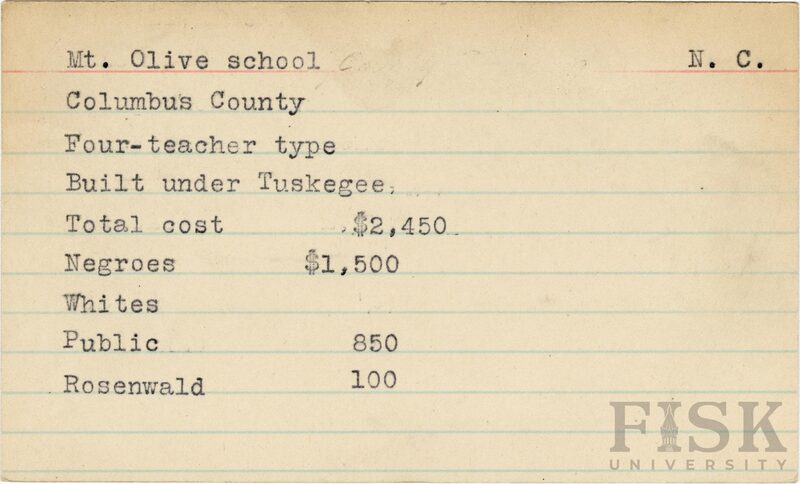 Mt. Olive school N. C.
Columbus County
Four-teacher type
Built under Tuskegee.
Total cost $2,450
Negroes $1,500
Whites
Public 850
Rosenwald 100
FISK
UNIVERSITY